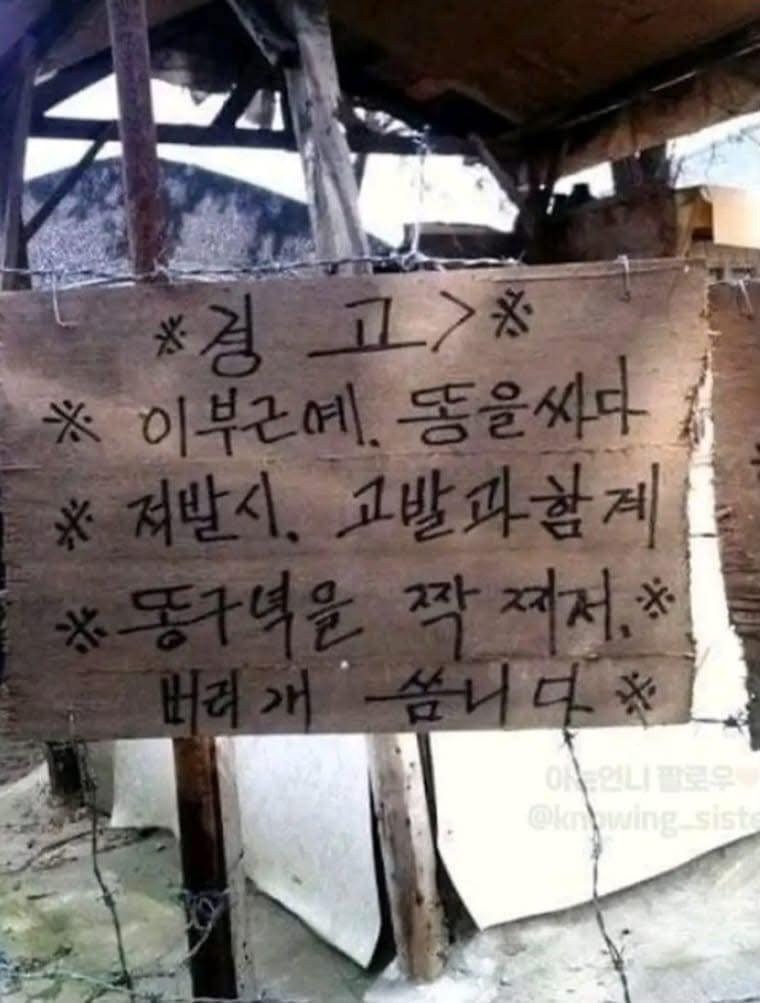 ※경 고>※
※ 이부근에. 똥을싸다
※ 저발시. 고발과함계
※똥구녁을 짝 찌저.※
버리개 씀니다※
아는언니 팔로우🤍
@knowing_siste